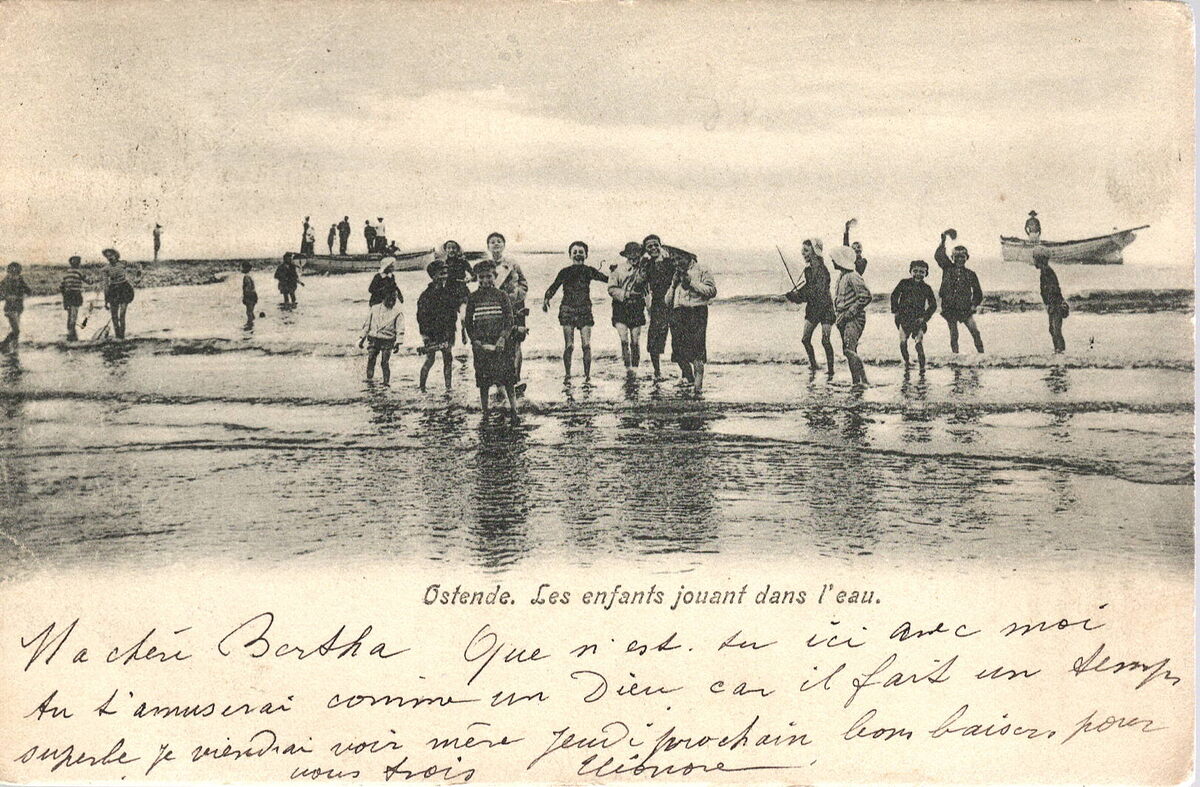 Ostende. Les enfants jouant dans l'eau.
Ma chéri Bertha Que n'est-tu ici avec moi
tu t'amuserai comme un Dieu car il fait un temps
superbe je viendrai voir mère jeudi prochain bons baisers pour
vous trois Eléonore